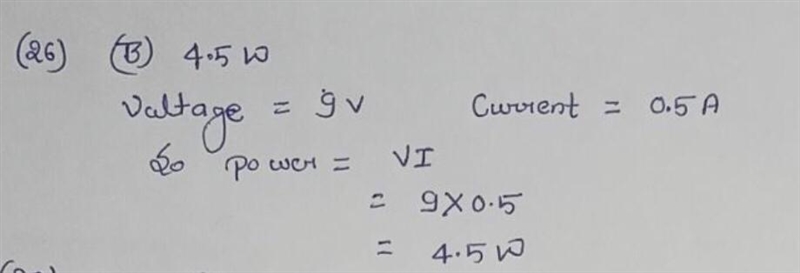 (26) (B) 4.5 W
Voltage = 9V Current = 0.5 A
So power = VI
= 9X0.5
= 4.5 W